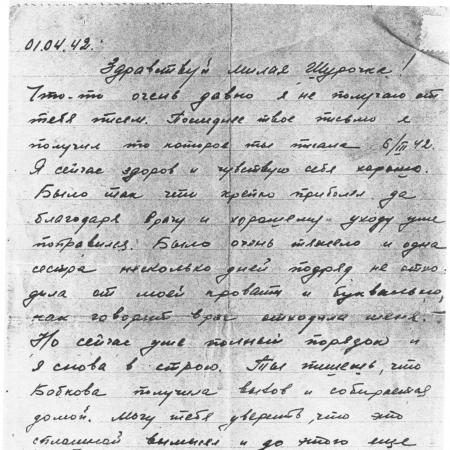 01.04.42.
Здравствуй милая Шурочка!
Что-то очень давно я не получаю от
тебя писем. Последнее твое письмо я
получил то которое ты писала 6/III 42.
Я сейчас здоров и чувствую себя хорошо.
Было так что крепко приболел да
благодаря врачу и хорошему уходу уже
поправился. Было очень тяжело и одна
сестра несколько дней подряд не отхо-
дила от моей кровати и буквально,
как говорит врач отходила меня.
Но сейчас уже полный порядок и
я снова в строю. Ты пишешь, что
Бобкова получила вызов и собирается
домой. Могу тебя уверить, что это
сплошной вымысел и до этого еще